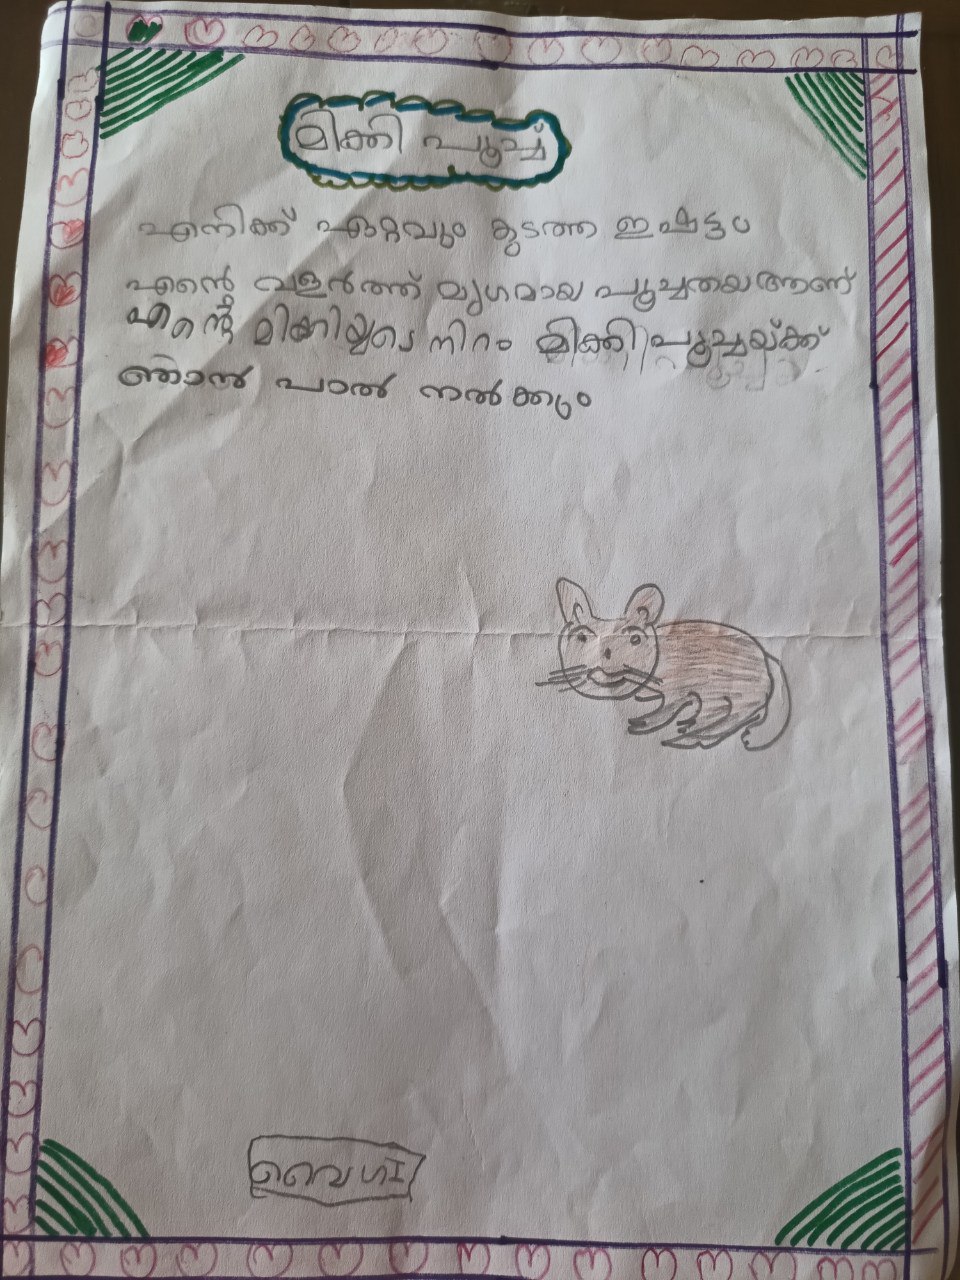 മിക്കി പൂച്ച്
എനിക്ക് ഏറ്റവും കുടത്ത ഇഷ്ട്ടം
എന്റെ വളർത്ത് മൃഗമായ പൂച്ചതയആണ്
എന്റെ മിക്കിയുടെ നിറം മിക്കി പൂച്ചയ്ക്ക്
ഞാൻ പാൽ നൽക്കും
വൈഗ